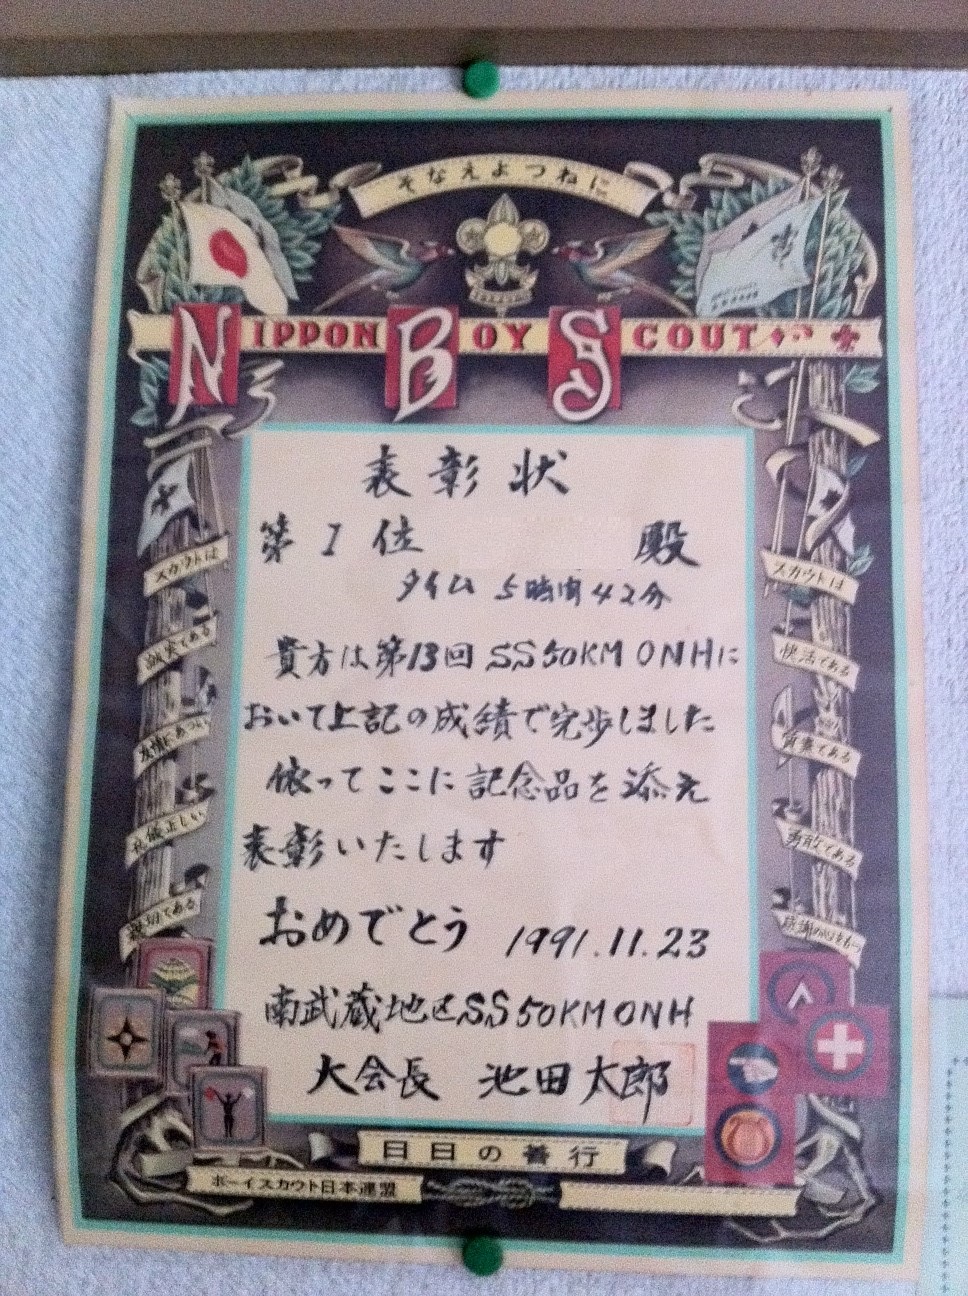 そなえよつねに
NIPPON BOY SCOUT
表彰状
第1位 殿
タイム 5時間42分
貴方は第13回SS50KM ONHに
おいて上記の成績で完歩しました
依ってここに記念品を添え
表彰いたします
おめでとう 1991.11.23
南武蔵地区SS50KM ONH
大会長 池田太郎
スカウトは
誠実である
友情にあつい
礼儀正しい
親切である
スカウトは
快活である
質素である
勇敢である
感謝の心をもつ
日日の善行
ボーイスカウト日本連盟